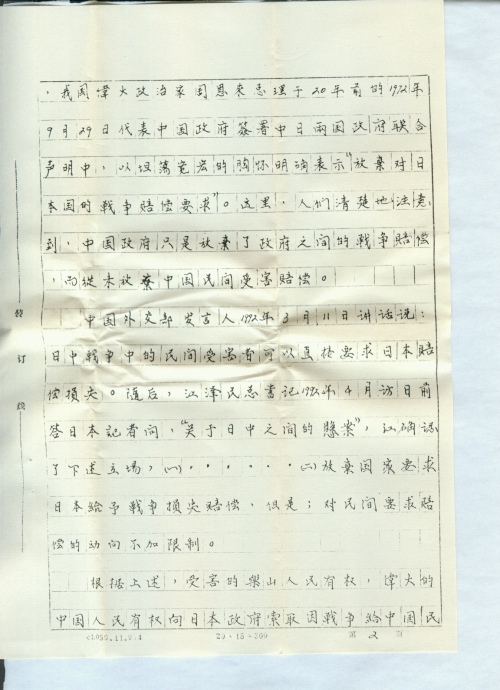 ，我国偉大政治家周恩来总理于20年前的1972年
9月29日代表中国政府签署中日兩国政府联合
声明中，以坦荡宽宏的胸怀明确表示"放棄对日
本国的戰争赔偿要求"。这里，人们清楚地注意
到，中国政府只是放棄了政府之间的戰争赔偿
，而從未放棄中国民间受害赔偿。
中国外交部发言人1992年3月11日讲话说：
日中戰争中的民间受害者可以直接要求日本赔
偿損失。随后，江泽民总書记1992年4月访日前
答日本記者问，"关于日中之间的懸案"，江确認
了下述立场，㈠······㈡放棄国家要求
日本给予戰争損失赔偿，但是；对民间要求赔
偿的动向不加限制。
根据上述，受害的樂山人民有权，偉大的
中国人民有权向日本政府索取因戰争給中国民
装
订
线
20×15=300
第 2 頁